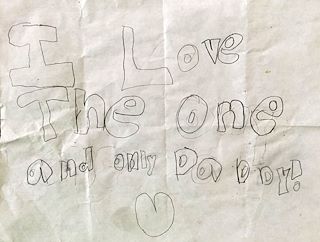 I Love
The One
and only Daddy!